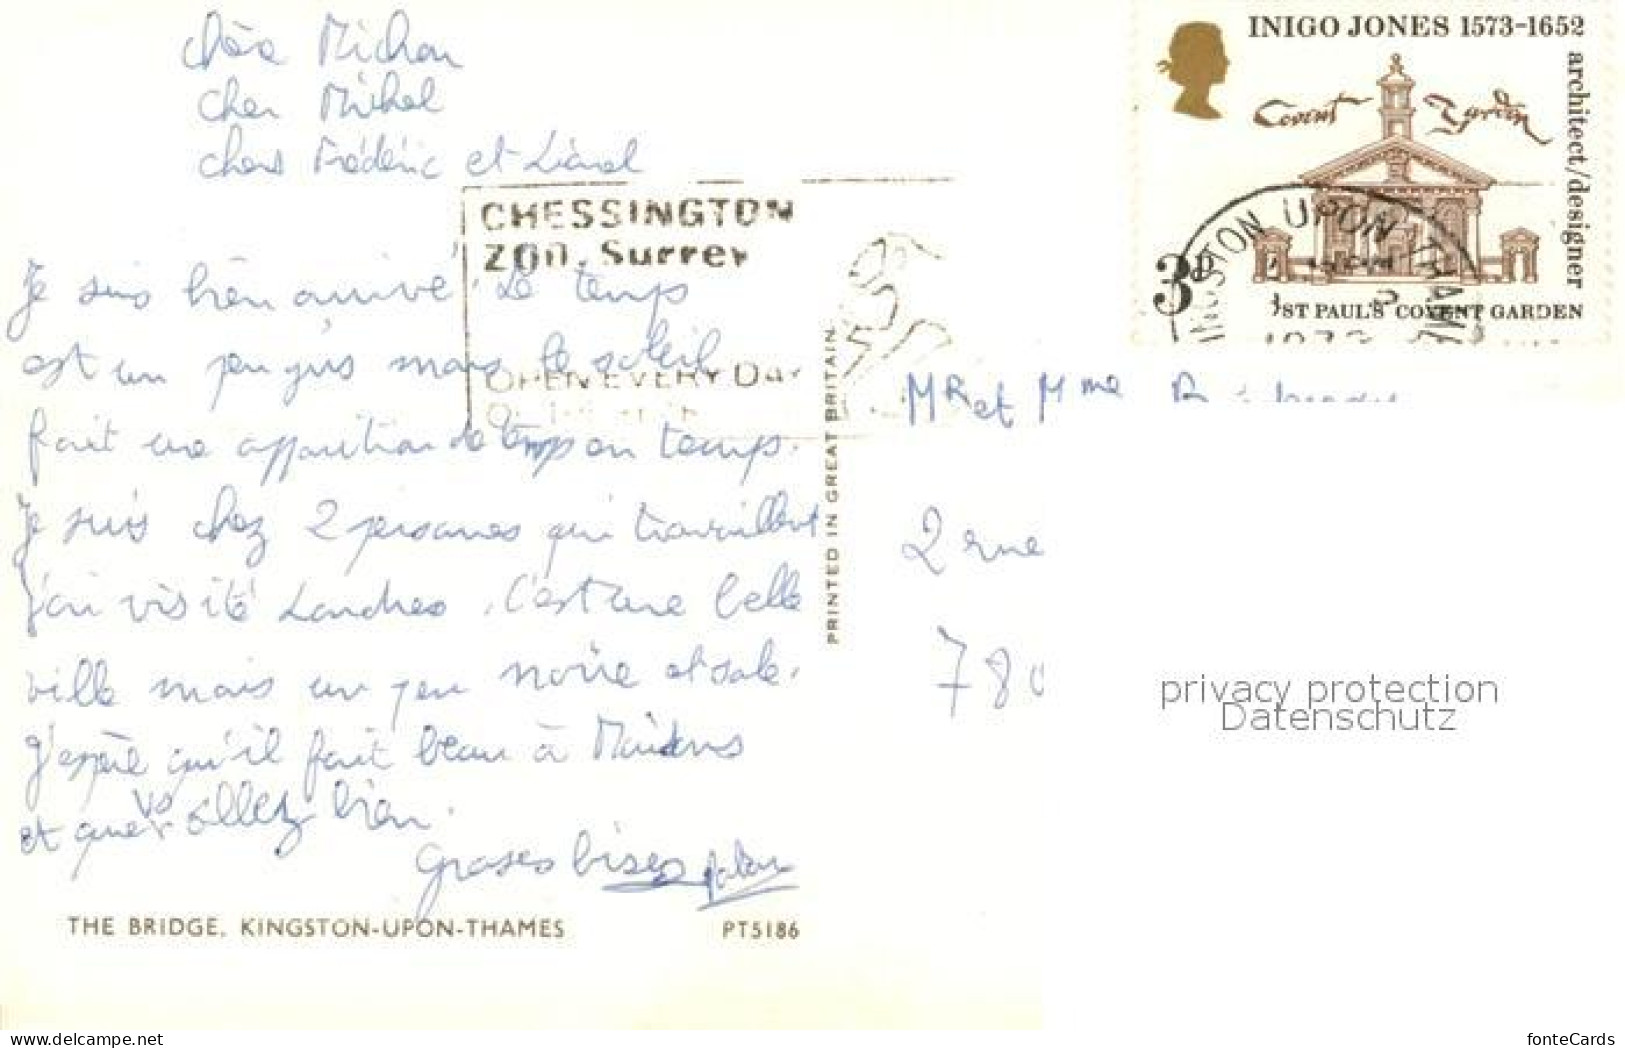 Chère Michou
cher Michel
chers Frédéric et Lionel
INIGO JONES 1573-1652
architect/designer
Covent Garden
3P
ST PAUL'S COVENT GARDEN
KINGSTON UPON THAMES
1973
CHESSINGTON
ZOO, Surrey
OPEN EVERY DAY
Je suis bien arrivé. Le temps
est un peu gris mais le soleil
fait une apparition de temps en temps.
Je suis chez 2 personnes qui travaillent
j'ai visité Londres. C'est une belle
ville mais un peu noire et sale.
J'espère qu'il fait beau à
et que vs allez bien.
Grosses bises
PRINTED IN GREAT BRITAIN
MR et Mme
2 rue
780
THE BRIDGE, KINGSTON-UPON-THAMES
PT5186
privacy protection
Datenschutz
fonteCards